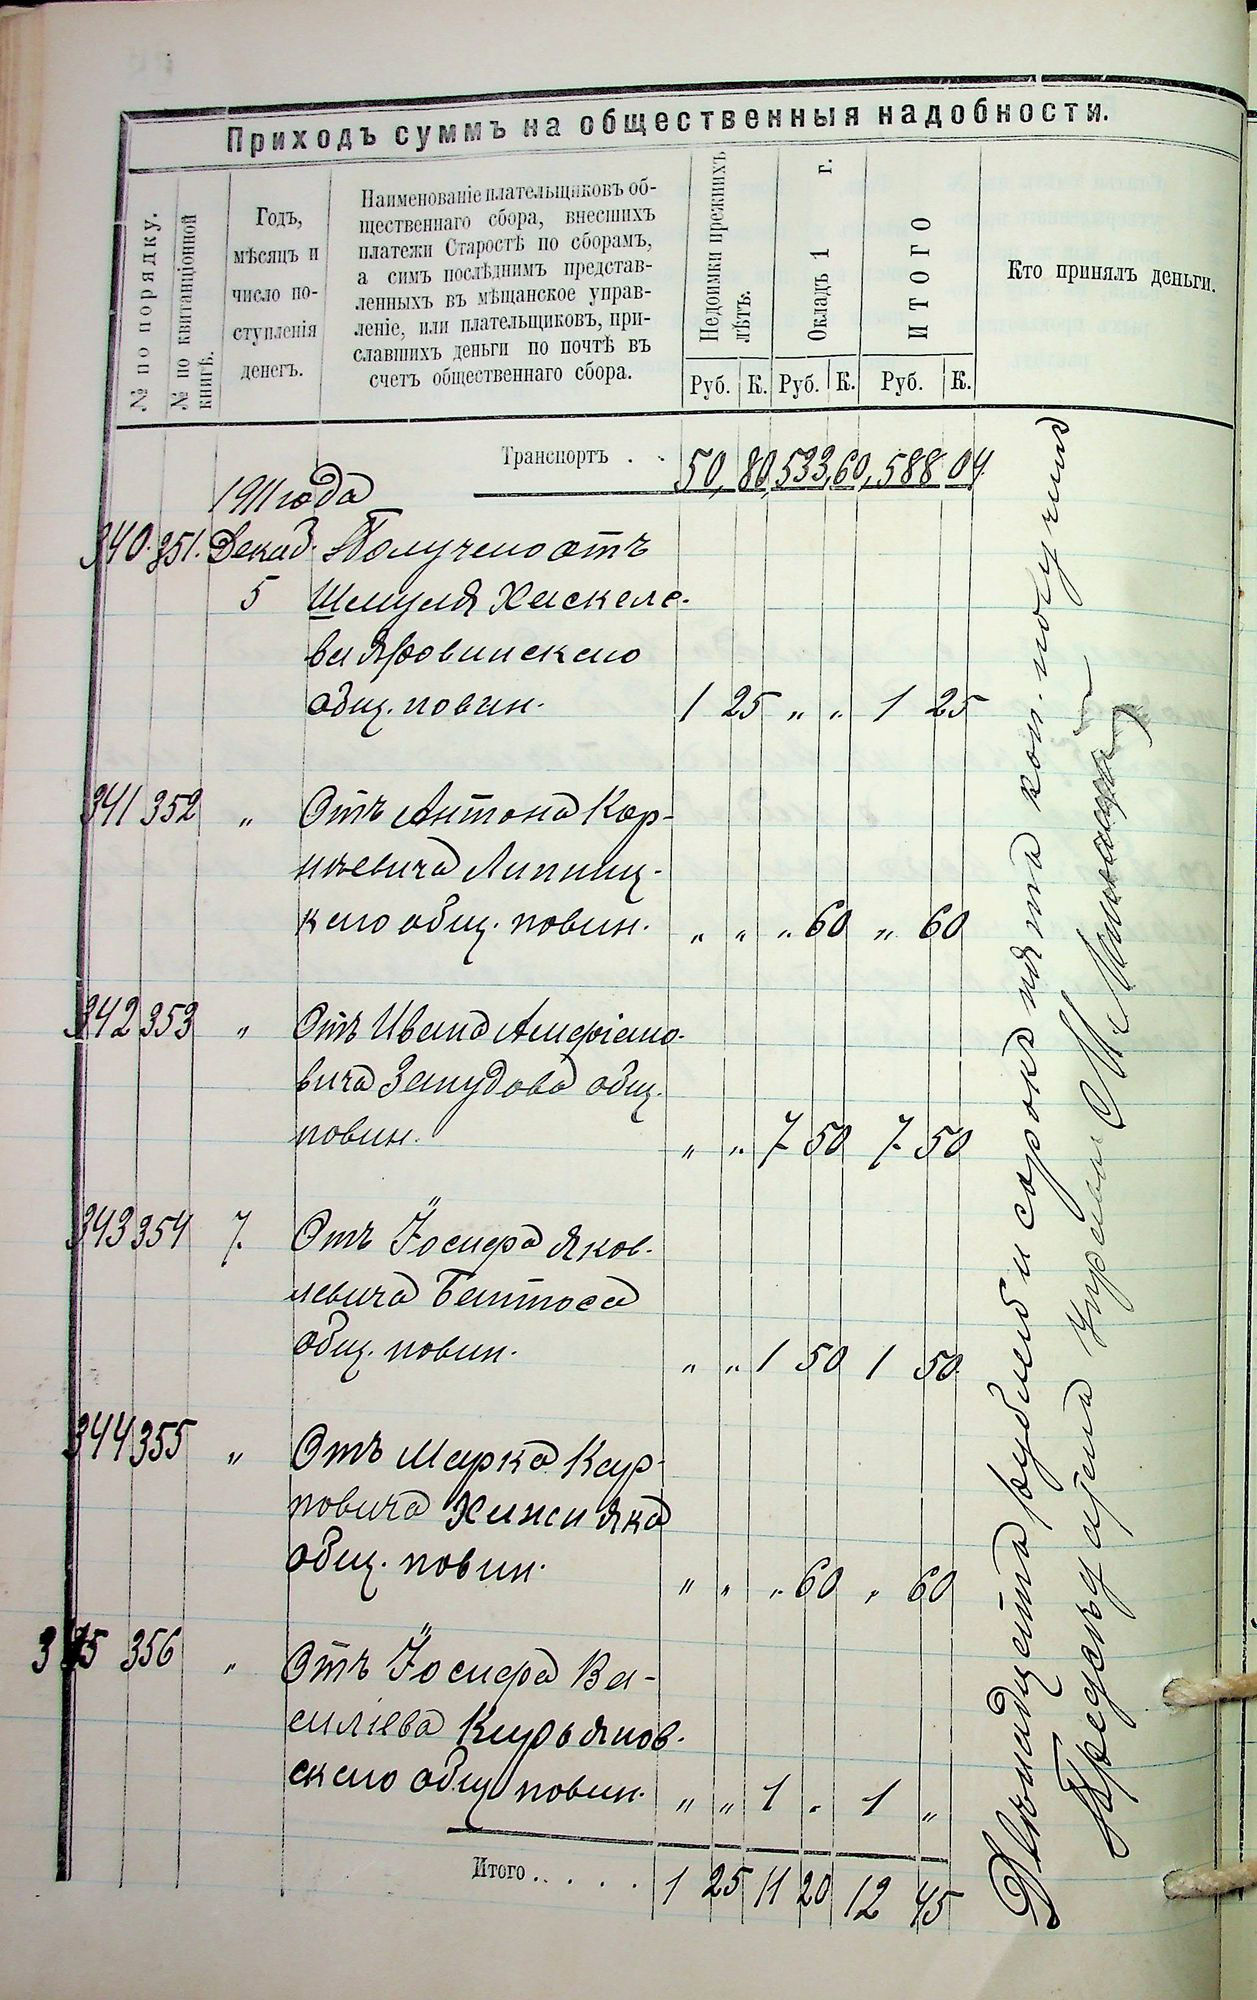 Приходъ суммъ на общественныя надобности.
№ по порядку.
№ по квитанціонной
книгѣ.
Годъ,
мѣсяцъ и
число по-
ступленія
денегъ.
Наименованіе плательщиковъ об-
щественнаго сбора, внесшихъ
платежи Старостѣ по сборамъ,
а симъ послѣднимъ представ-
ленныхъ въ мѣщанское управ-
леніе, или плательщиковъ, при-
славшихъ деньги по почтѣ въ
счетъ общественнаго сбора.
Недоимки прежнихъ
лѣтъ.
Окладъ 1 г.
ИТОГО
Кто принялъ деньги.
Руб. К. Руб. К. Руб. К.
Транспортъ . . 50, 80, 533, 60, 588 04
1911 года
340. 351. Декаб. Получено отъ
5 Шмуля Хаскеле-
ва
общ. повин. 1 25 „ „ 1 25
341 352 „ Отъ Антона Кор-
нѣевича Липниц-
каго общ. повин. „ „ „ 60 „ 60
342 353 „ Отъ Ивана
вича общ.
повин. „ „ 7 50 7 50
343 354 7. Отъ Іосифа Яков-
левича
общ. повин. „ „ 1 50 1 50
344 355 „ Отъ Марка Кар-
повича Хижняка
общ. повин. „ „ „ 60 „ 60
345 356 „ Отъ Іосифа Ва-
силіева Курьянов-
скаго общ. повин. „ „ 1 „ 1 „
Итого . . . . . 1 25 11 20 12 45
Двѣнадцать рублей и сорокъ пять коп. получилъ
Предсѣдатель Управы